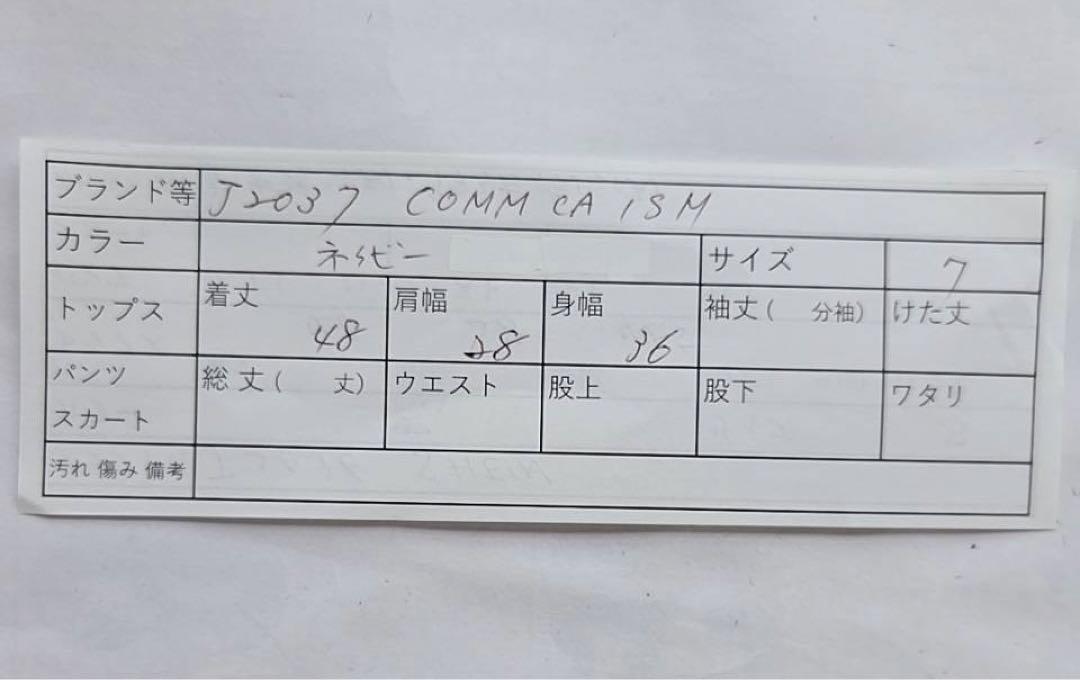 ブランド等 J2037 COMM CA ISM
カラー ネイビー サイズ 7
トップス 着丈 48 肩幅 28 身幅 36 袖丈( 分袖) けた丈
パンツ 総丈( 丈) ウエスト 股上 股下 ワタリ
スカート
汚れ 傷み 備考